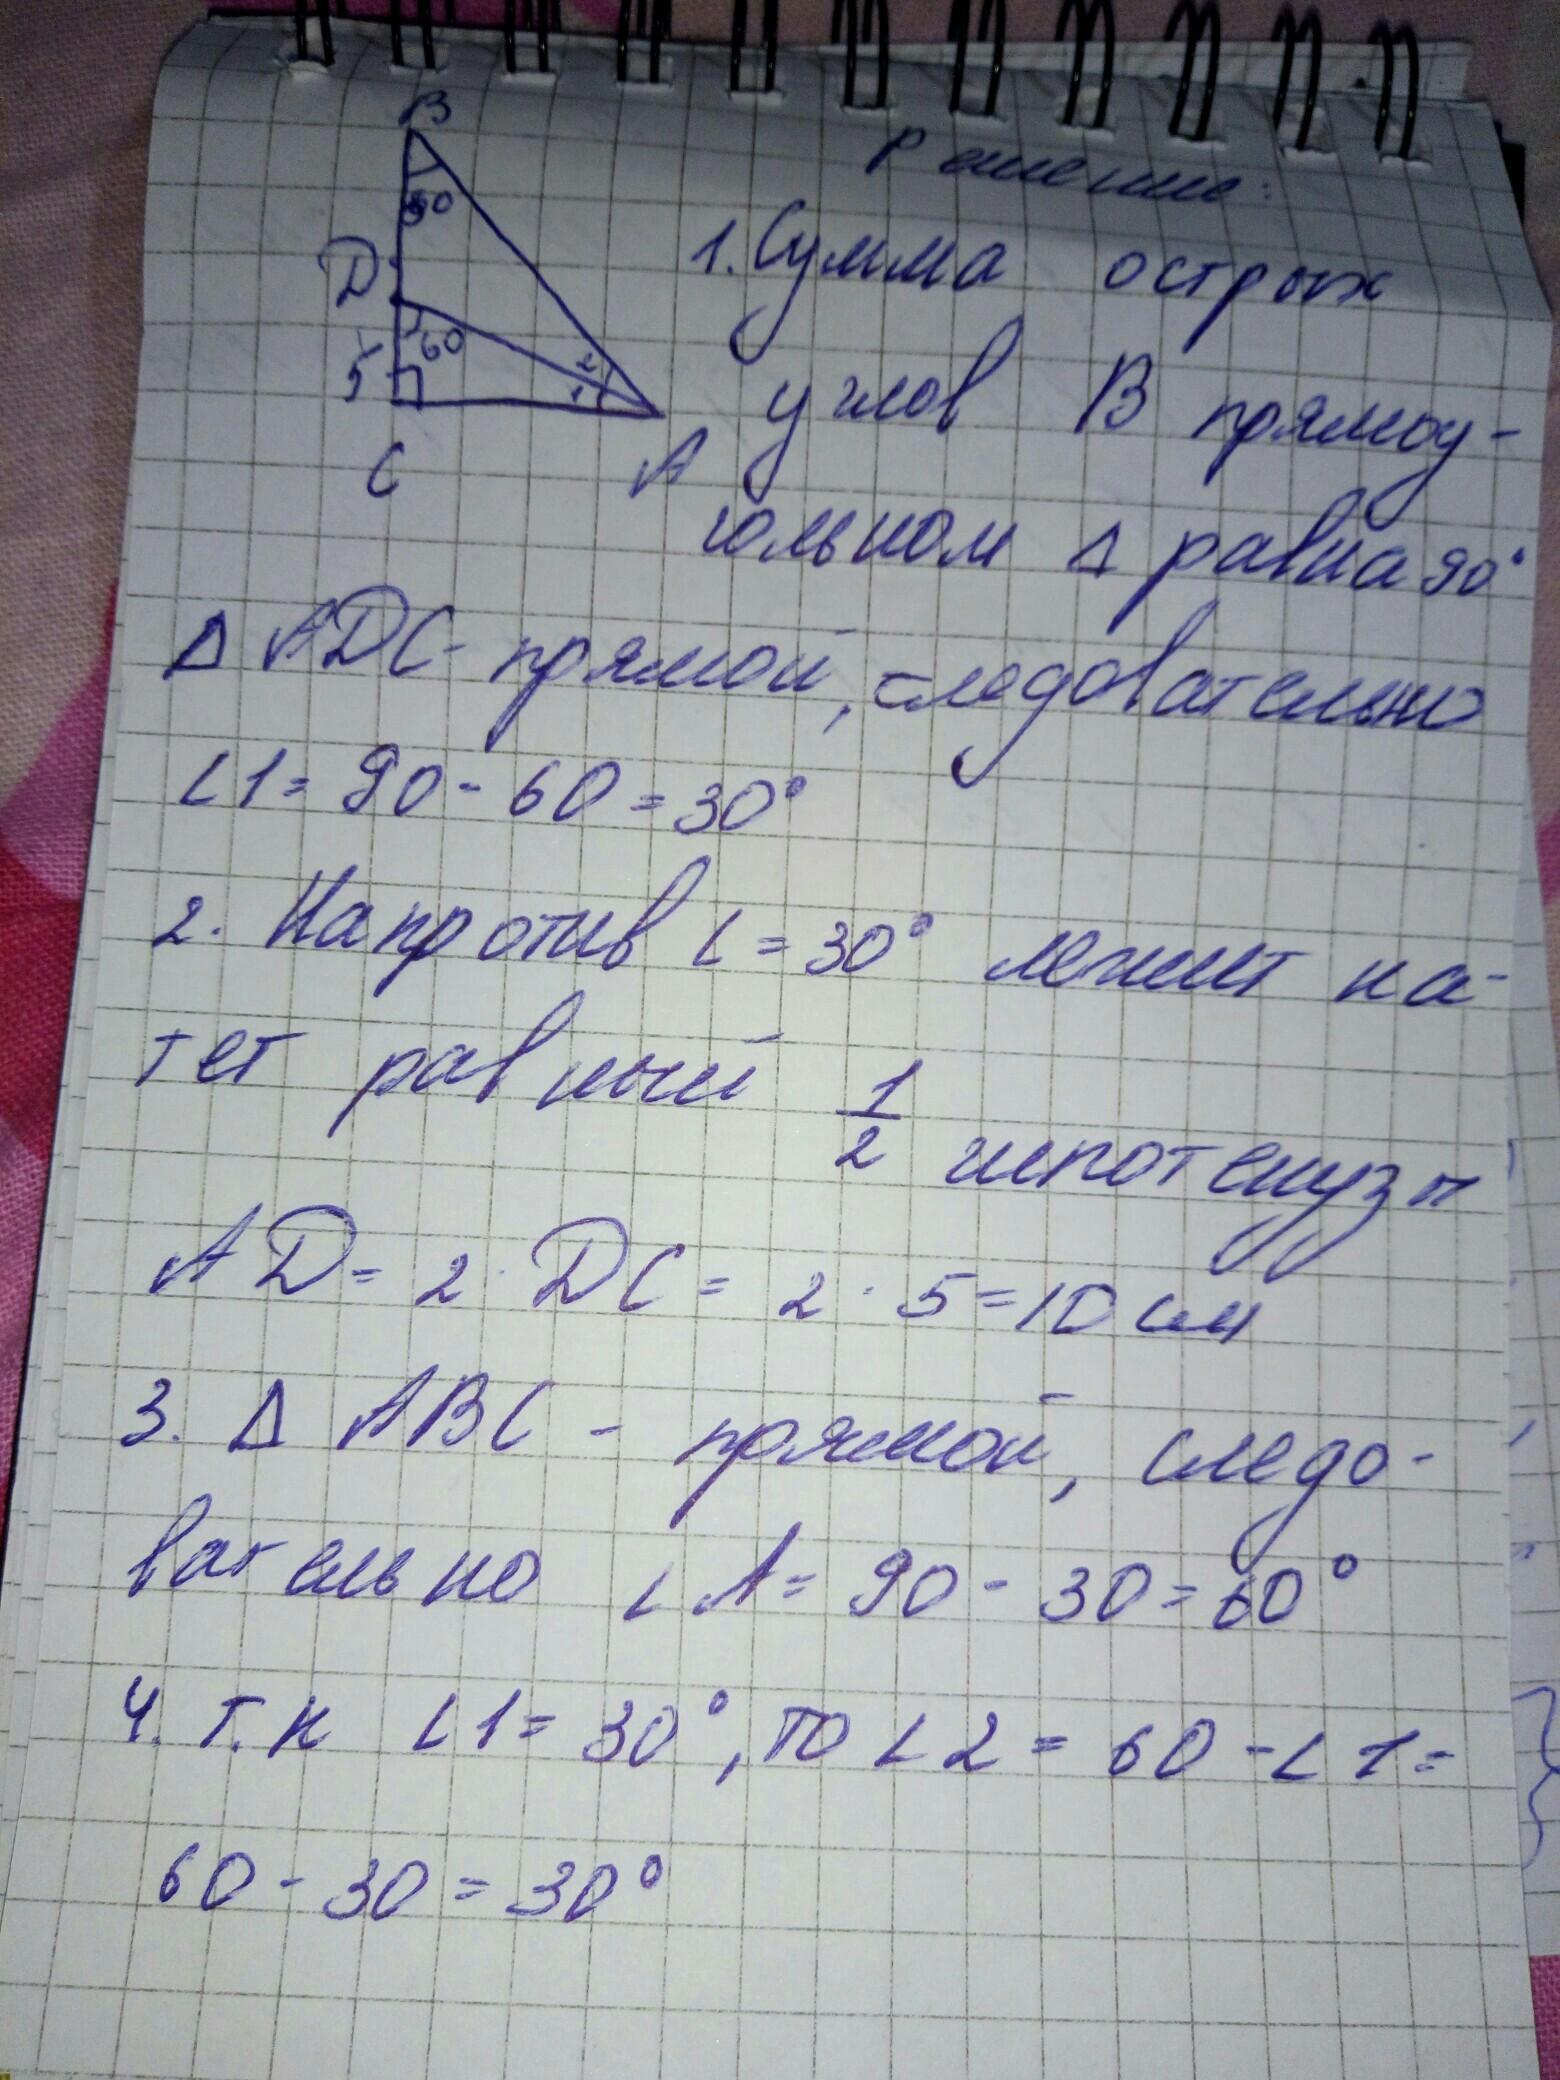 B
30
D
60
5
2
1
C
A
Решение:
1. Сумма острых
углов В прямоу-
гольном Δ равна 90°
Δ ADC - прямой, следовательно
∠1 = 90 - 60 = 30°
2. Напротив ∠ = 30° лежит ка-
тет равный 1/2 гипотенузы
AD = 2 · DC = 2 · 5 = 10 см
3. Δ ABC - прямой, следо-
вательно ∠A = 90 - 30 = 60°
4. т.к ∠1 = 30°, то ∠2 = 60 - ∠1 =
60 - 30 = 30°